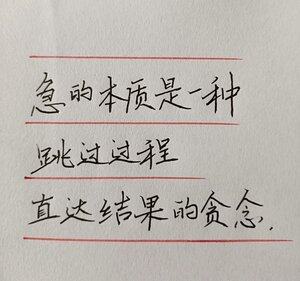 急的本质是一种
跳过过程
直达结果的贪念.